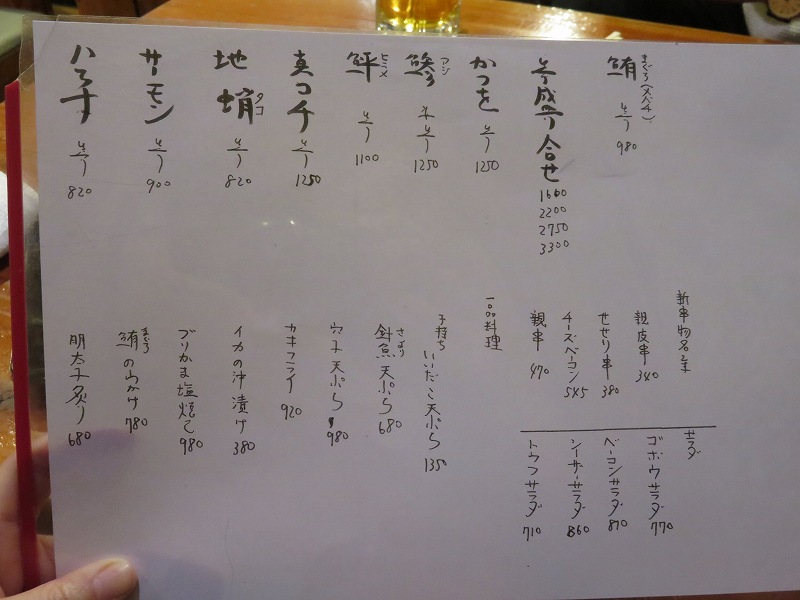 鮪 まぐろ(メバチ) 980
盛り合せ 1600 2200 2750 3300
かつを 1250
鯵 アジ 1250
鮃 ヒラメ 1100
真コチ 1250
地蛸 タコ 820
サーモン 900
ハマチ 820
新串物名革
親皮串 340
せせり串 380
チーズベーコン 545
親串 470
サラダ
ゴボウサラダ 770
ベーコンサラダ 870
シーザーサラダ 860
トウフサラダ 710
一品料理
子持ちいいだこ天ぷら 1350
針魚天ぷら さより 680
穴子天ぷら 980
カキフライ 920
イカの沖漬け 380
ブリかま塩焼て 980
鮪のわかけ まぐろ 780
明太子炙り 680